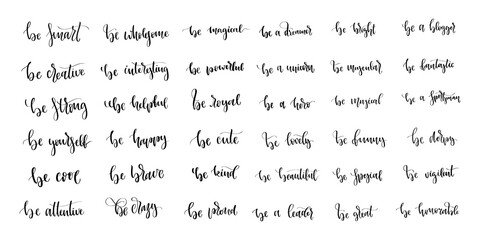 be smart be wholesome be magical be a dreamer be bright be a blogger
be creative be interesting be powerful be a unicorn be muscular be fantastic
be strong be helpful be royal be a hero be musical be a sportsman
be yourself be happy be cute be lovely be funny be
be cool be brave be kind be beautiful be special be vigilant
be attentive be crazy be proud be a leader be great be honorable